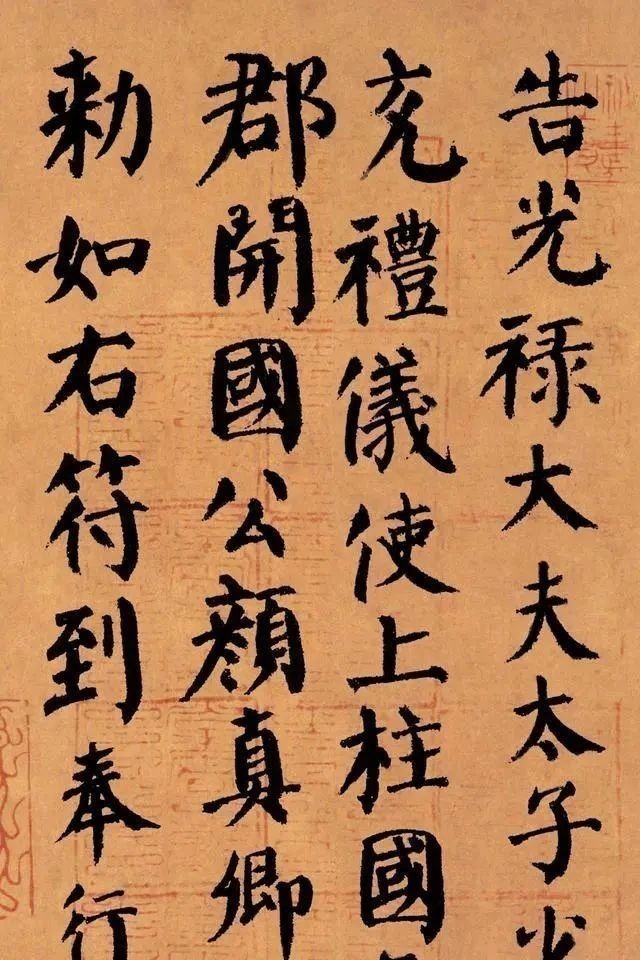 告光禄大夫太子少
充禮儀使上柱國
郡開國公顏真卿
勑如右符到奉行